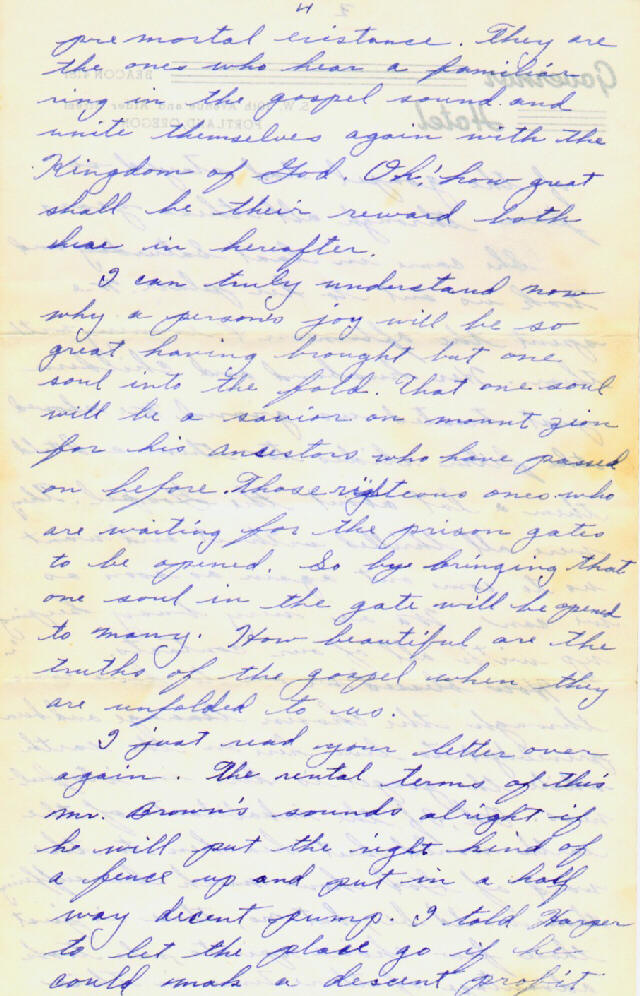 4
premortal existance. They are
the ones who hear a familiar
ring in the gospel sound and
unite themselves again with the
Kingdom of God. Oh! how great
shall be their reward both
here in hereafter.
I can truly understand now
why a persons joy will be so
great having brought but one
soul into the fold. That one soul
will be a savior on mount zion
for his ancestors who have passed
on before. Those righteous ones who
are waiting for the prison gates
to be opened. So bye bringing that
one soul in the gate will be opened
to many. How beautiful are the
truths of the gospel when they
are unfolded to us.
I just read your letter over
again. The rental terms of this
mr. Brown's sounds alright if
he will put the right kind of
a fence up and put in a half
way decent pump. I told Harper
to let the place go if he
could mak a descent profit
Governor
Hotel
BEACON
S. W. Avenue and Alder Street
PORTLAND OREGON